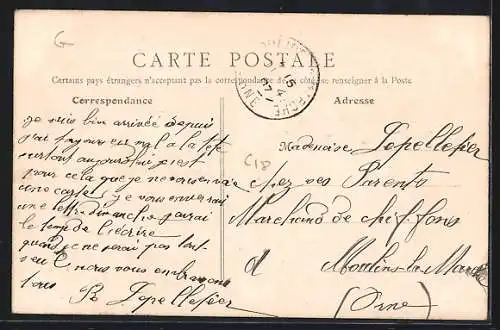 G
CARTE POSTALE
Certains pays étrangers n'acceptant pas la correspondance de ce côté, se renseigner à la Poste
Correspondance
Adresse
je suis bien arrivée depuis
j'ai toujours eu mal a la tete
surtout aujourd'hui c'est
pour cela que je ne
une carte je vous enverrai
une lettre dimanche j'aurai
le temps de l'écrire
quand je ne serai pas tout
nous vous embrassons
tous
B Lepelletier
C18
Mademoiselle Lepelletier
chez ses Parents
Marchand de chiffons
à Moulins-la-Marche
(Orne)
15
4
07
ORNE